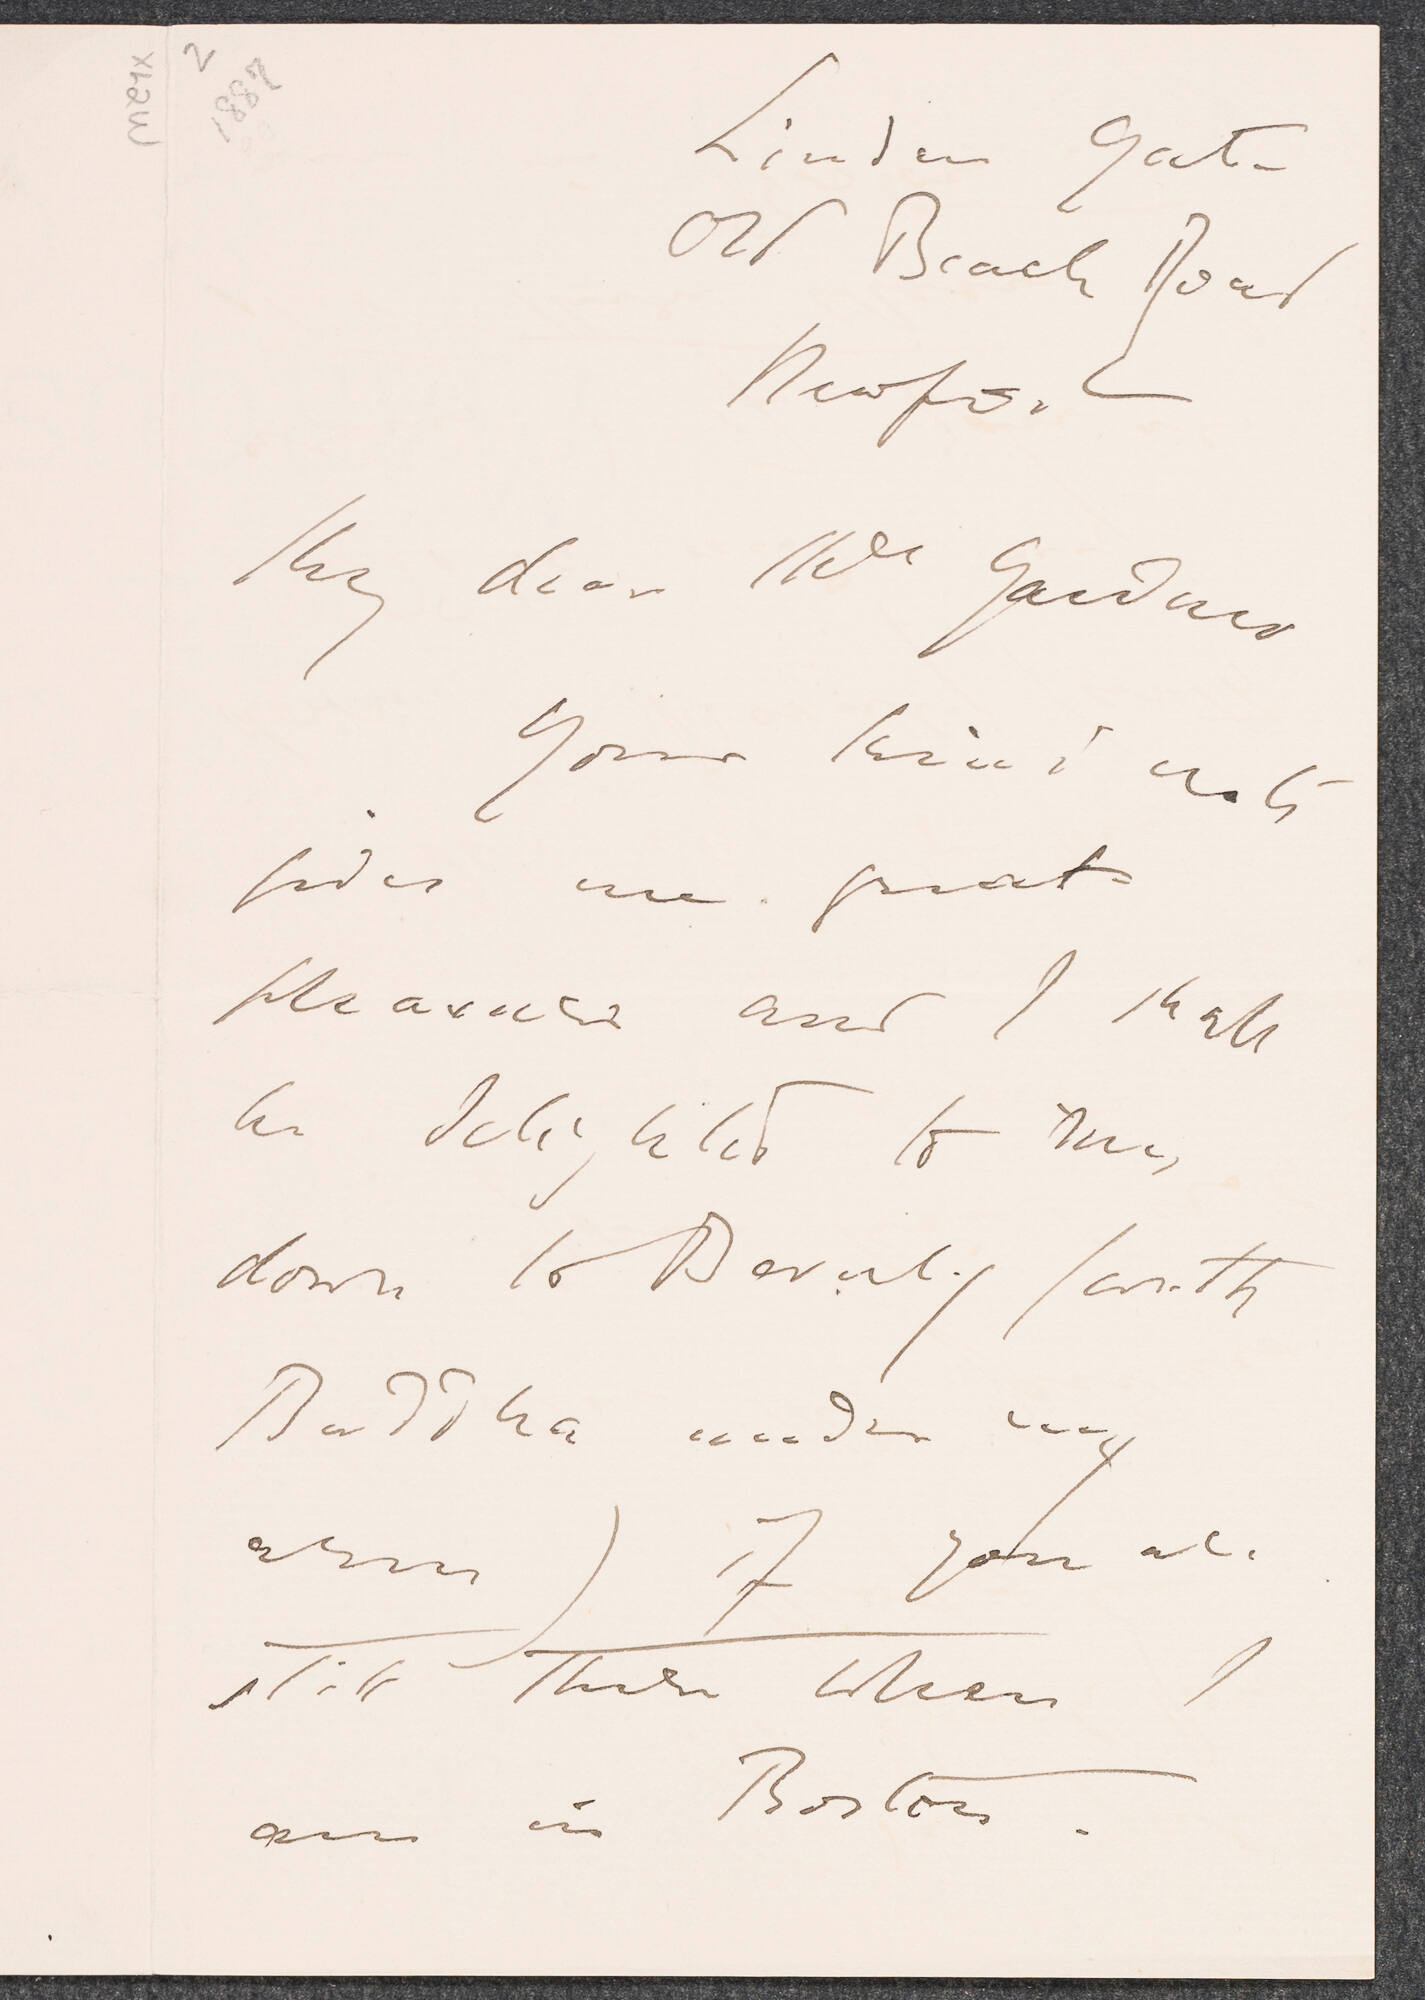 2
1887
Linden Gate
Old Beach Road
Newport
My dear Mrs Gardner
Your kind note
gives me great
pleasure and I shall
be delighted to run
down to Beverly (with
Buddha under my
arm) if you are
still there when I
am in Boston.